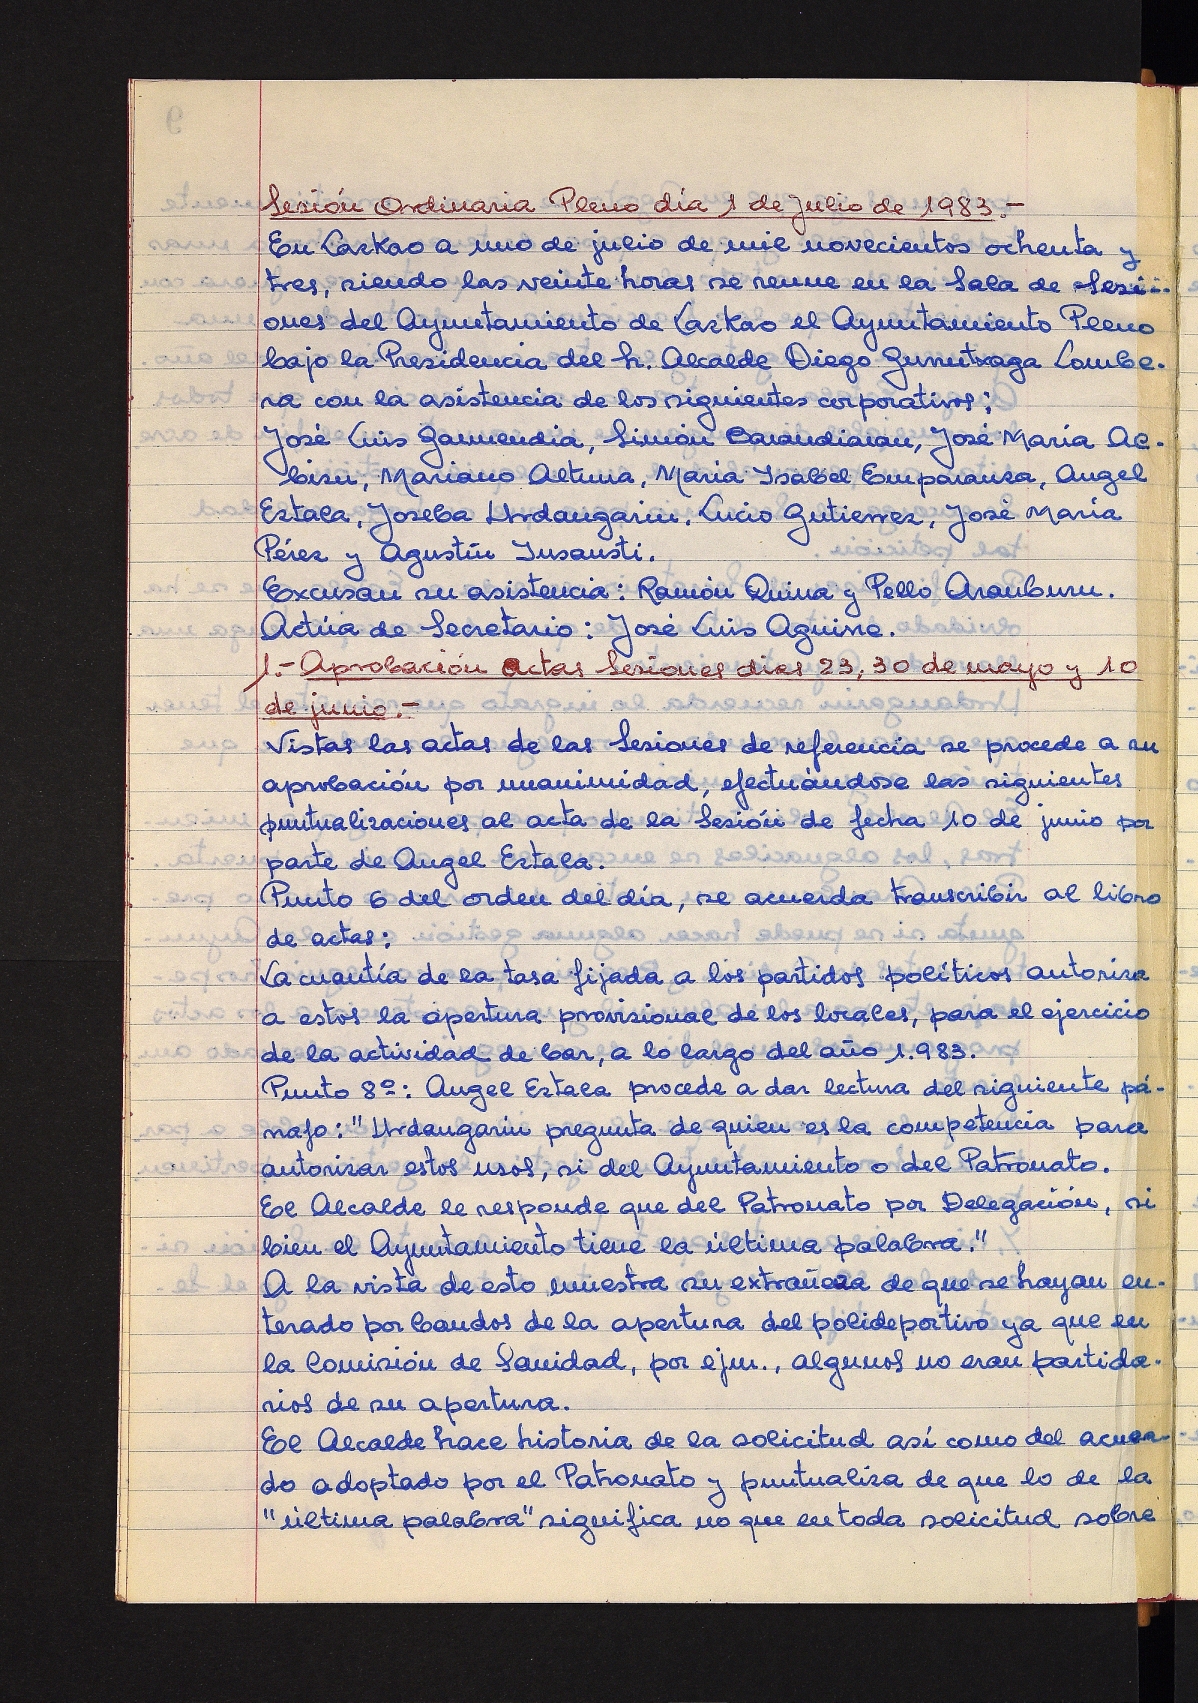 Sesión Ordinaria Pleno día 1 de Julio de 1983.-
En Lazkao a uno de julio de mil novecientos ochenta y
tres, siendo las veinte horas se reune en la Sala de Sesi-
ones del Ayuntamiento de Lazkao el Ayuntamiento Pleno
bajo la Presidencia del Sr. Alcalde Diego Gurrutxaga Lombe-
ra con la asistencia de los siguientes corporativos:
José Luis Garmendia, Simón Barandiaran, José María Al-
bisu, Mariano Altuna, Maria Isabel Emparanza, Angel
Estala, Joseba Urdangarin, Lucio Gutierrez, José María
Pérez y Agustín Insausti.
Excusan su asistencia: Ramón Quina y Pello Aramburu.
Actúa de Secretario: José Luis Aguirre.
1.- Aprobación actas Sesiones dias 23, 30 de mayo y 10
de junio.-
Vistas las actas de las Sesiones de referencia se procede a su
aprobación por unanimidad, efectuándose las siguientes
puntualizaciones al acta de la Sesión de fecha 10 de junio por
parte de Angel Estala.
Punto 6 del orden del día, se acuerda transcribir al libro
de actas:
La cuantía de la tasa fijada a los partidos políticos autoriza
a estos la apertura provisional de los locales, para el ejercicio
de la actividad de bar, a lo largo del año 1.983.
Punto 8º: Angel Estala procede a dar lectura del siguiente pá-
rrafo: "Urdangarin pregunta de quien es la competencia para
autorizar estos usos, si del Ayuntamiento o del Patronato.
El Alcalde le responde que del Patronato por Delegación, si
bien el Ayuntamiento tiene la última palabra."
A la vista de esto muestra su extrañeza de que se hayan en-
terado por bandos de la apertura del polideportivo ya que en
la Comisión de Sanidad, por ejm., algunos no eran partida-
rios de su apertura.
El Alcalde hace historia de la solicitud así como del acuer-
do adoptado por el Patronato y puntualiza de que lo de la
"última palabra" significa no que en toda solicitud sobre